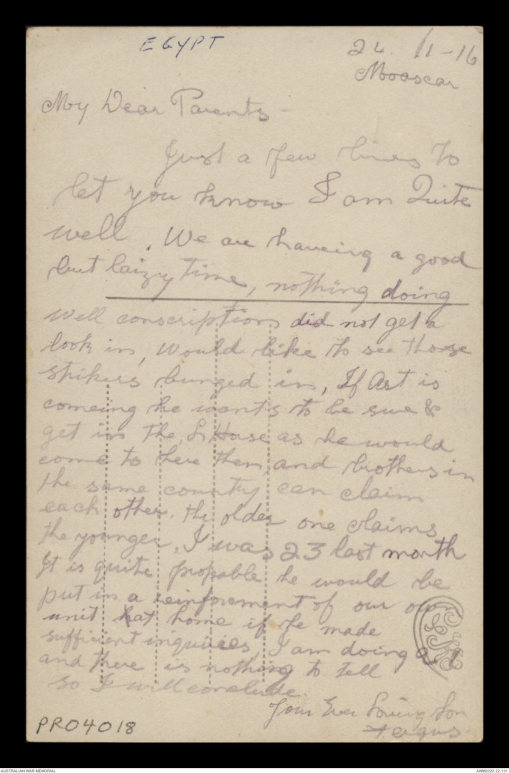 EGYPT
24. /1-16
Mooscar
My Dear Parents -
Just a few lines to
let you know I am Quite
well. We are haveing a good
but laizy time, nothing doing
Well conscriptions did not get a
look in, would like to see those
strikers bunged in, If Art is
comeing he wants to be sure &
get in the L. Horse as he would
come to here then and brothers in
the same country can claim
each other. the older one claims
the younger, I was 23 last month
It is quite propable he would be
put in a reinforcment of our own
unit hat home if he made
sufficient inquiries I am doing
and there is nothing to tell
so I will conclude.
Your Ever Loving Son
Fergus
PRO4018
AUSTRALIAN WAR MEMORIAL